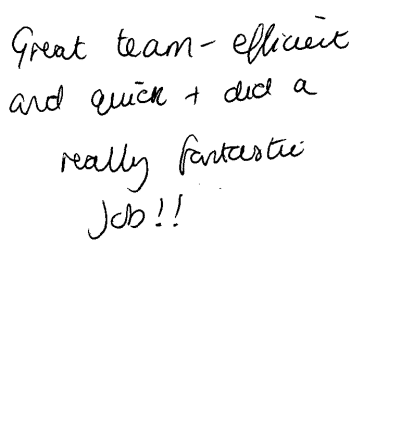 Great team - efficient
and quick + did a
really fantastic
Job!!